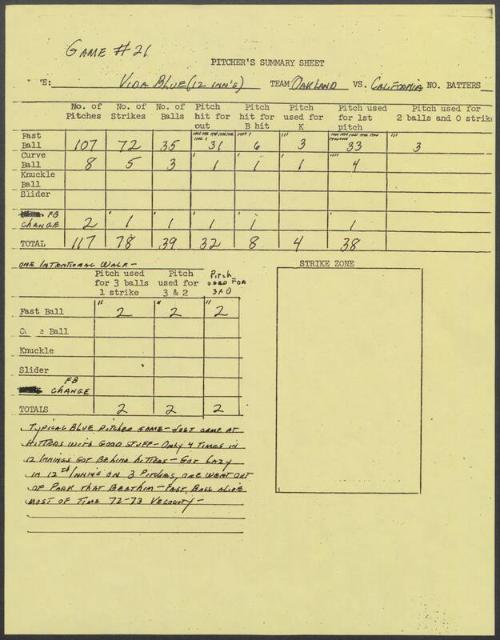 GAME #21
PITCHER'S SUMMARY SHEET
'E: VIDA BLUE (12 INN'S) TEAM OAKLAND VS. CALIFORNIA NO. BATTERS
No. of Pitches No. of Strikes No. of Balls Pitch hit for out Pitch hit for B hit Pitch used for K Pitch used for 1st pitch Pitch used for 2 balls and 0 strik
Fast Ball 107 72 35 31 6 3 33 3
Curve Ball 8 5 3 1 1 1 4
Knuckle Ball
Slider
FB CHANGE 2 1 1 1 1 1
TOTAL 117 78 39 32 8 4 38
ONE INTENTIONAL WALK-
STRIKE ZONE
Pitch used for 3 balls 1 strike Pitch used for 3 & 2 Pitch used for 3 & 0
Fast Ball 2 2 2
Ball
Knuckle
Slider
FB CHANGE
TOTALS 2 2 2
TYPICAL BLUE PITCHED GAME - JUST CAME AT
HITTERS WITH GOOD STUFF - ONLY 4 TIMES IN
12 INNINGS GOT BEHIND HITTERS - GOT LAZY
IN 12 INNING ON 3 PITCHES, ONE WENT OUT
OF PARK THAT BEAT HIM - FAST BALL ALIVE
MOST OF TIME 72-73 VELOCITY -